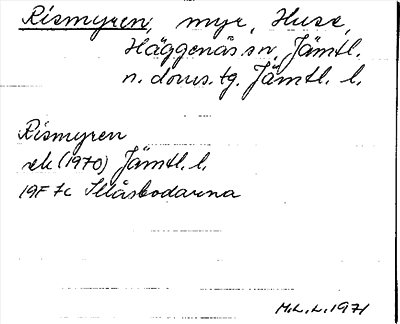 Rismyren, myr, Huse,
Häggenås sn, Jämtl.
n. doms. tg. Jämtl. l.
Rismyren
ek (1970) Jämtl. l.
19F 7c
M.L.L. 1971